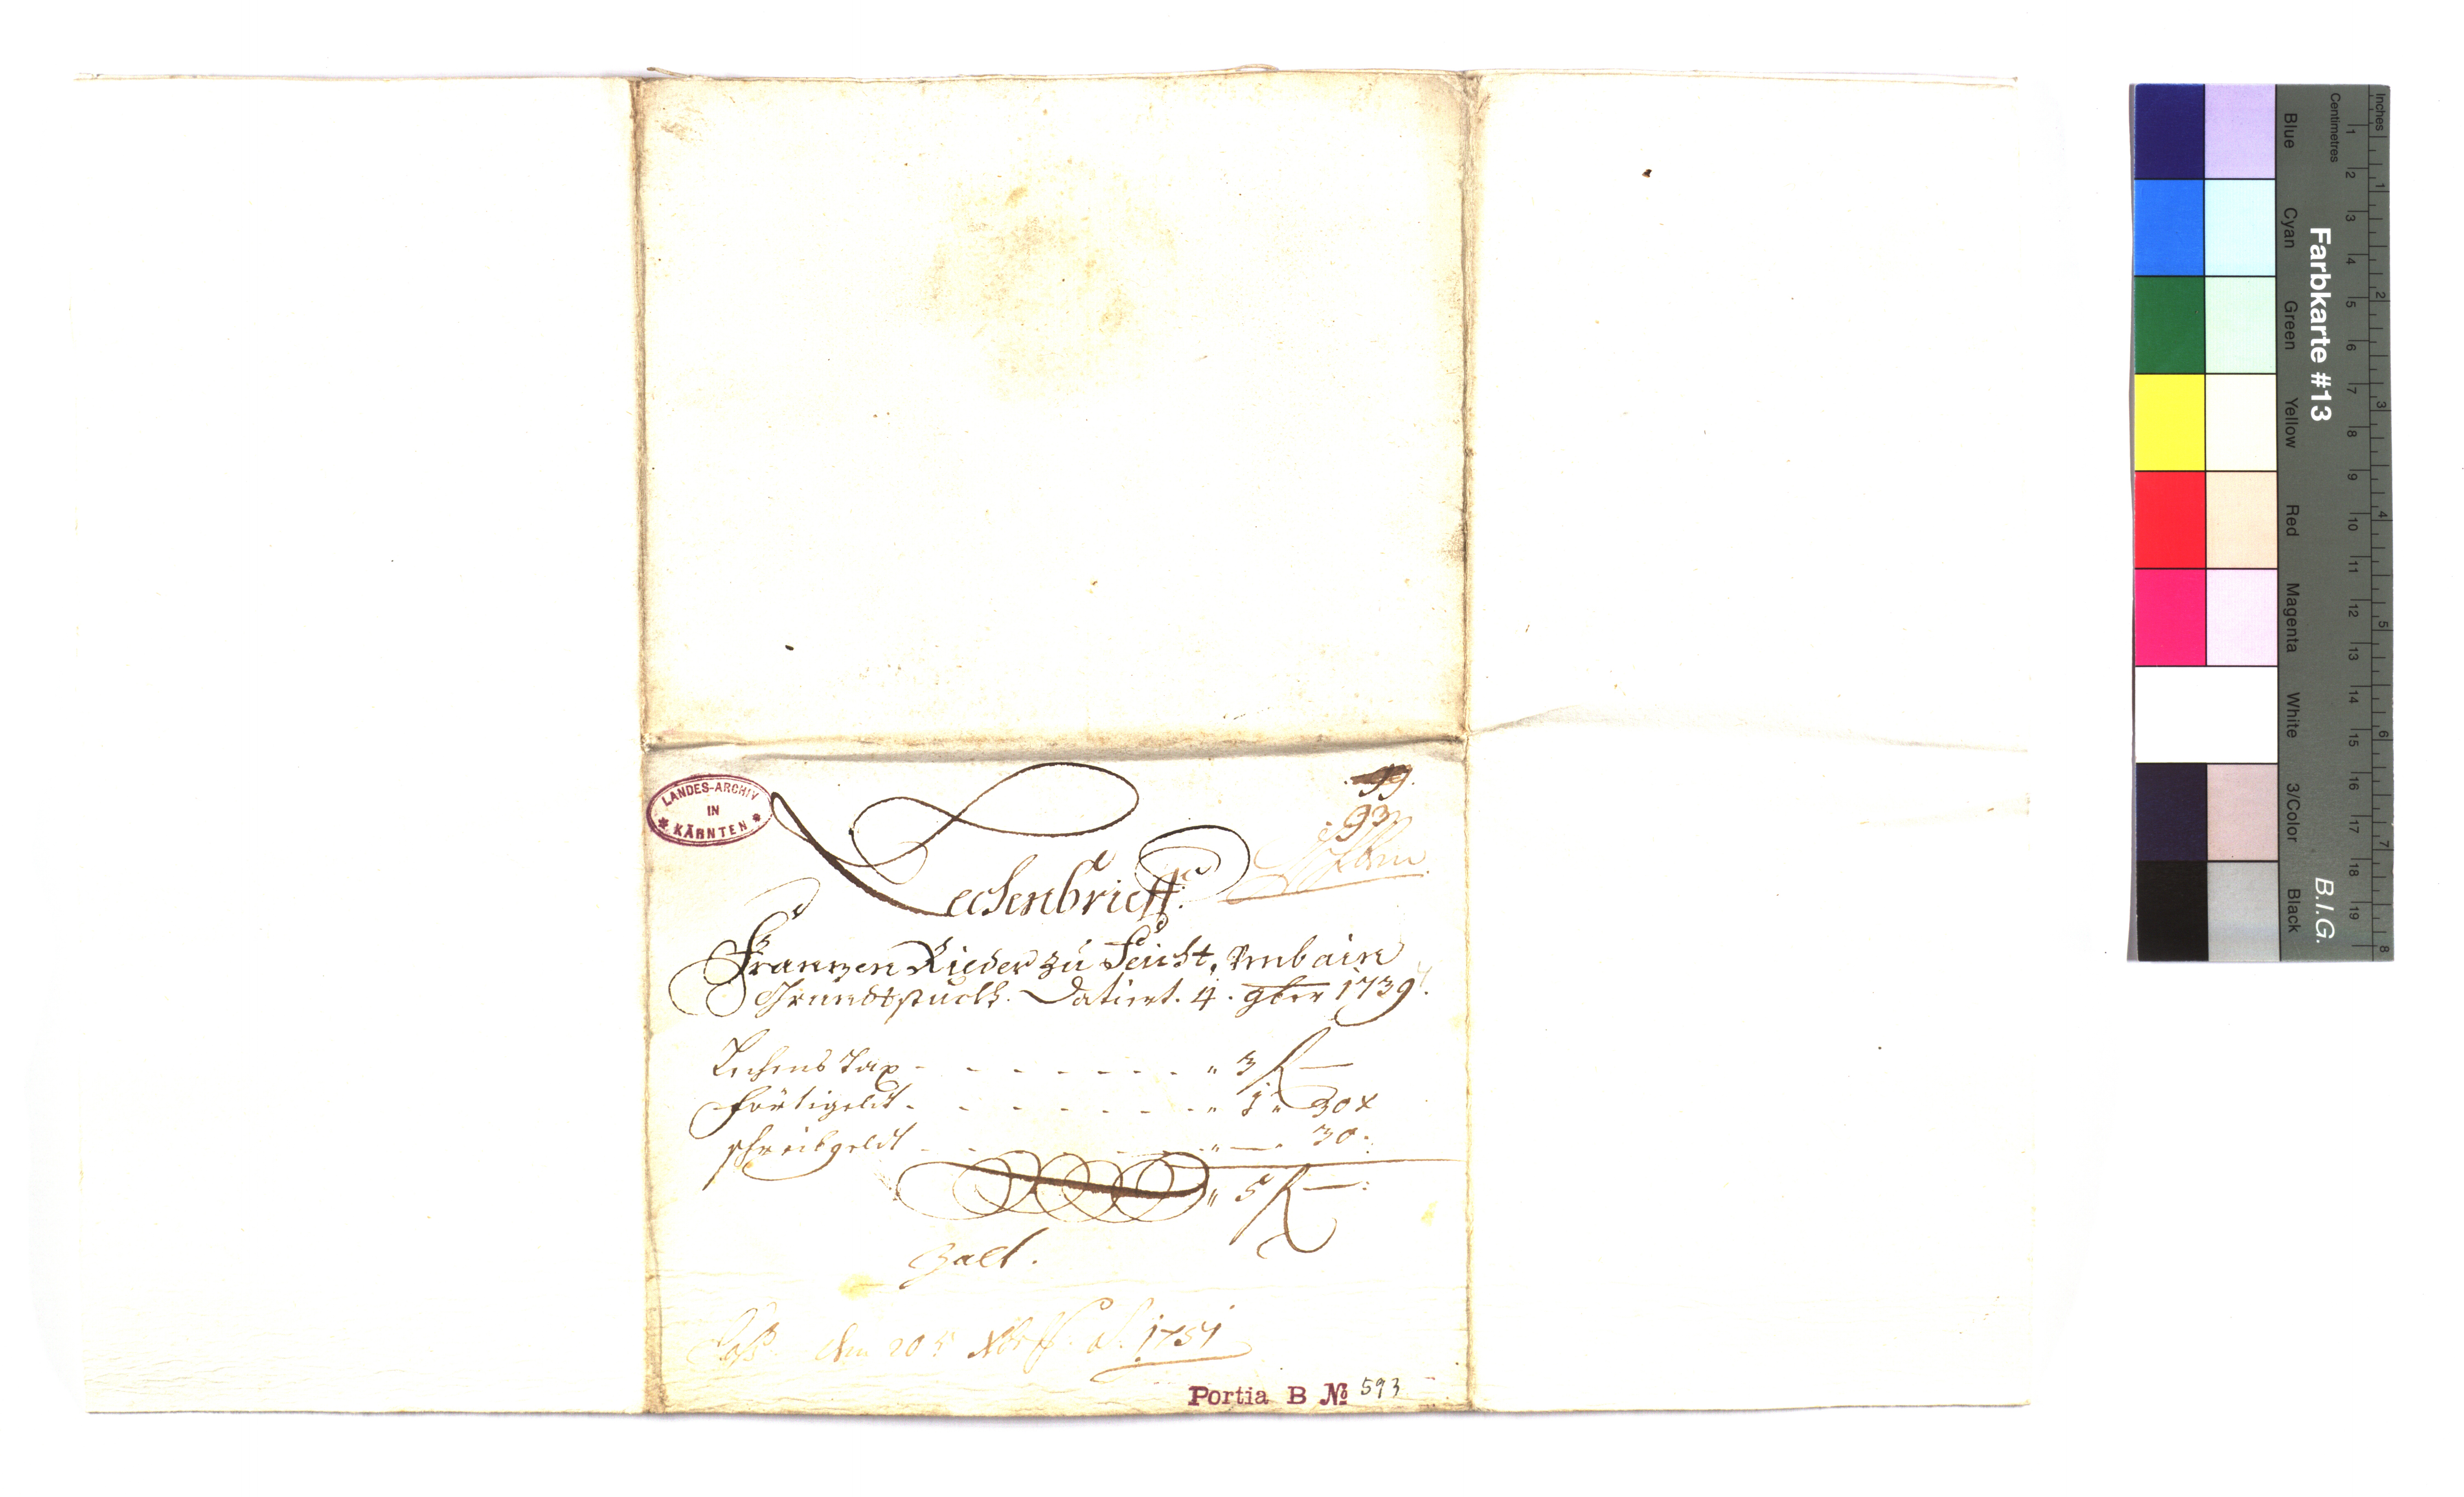 LANDES-ARCHIV
IN
* KÄRNTEN *
93
Lechenbrieff.
Franzen Rieder zu Feicht, umb ain
Grundtstuckh. Datiert. 4. 9ber 1739.
Lechens Tax - - - - - - - " 3 f —
Förtigeldt - - - - - - - " 1 " 30 x
schreibgeldt - - - - - " — . 30 .
" 5 f — .
Zalt .
den 20 1751
Portia B № 593
Inches
Centimetres
Farbkarte #13
B.I.G.
Blue
Cyan
Green
Yellow
Red
Magenta
White
3/Color
Black
1 2 3 4 5 6 7 8 9 10 11 12 13 14 15 16 17 18 19
1 2 3 4 5 6 7 8